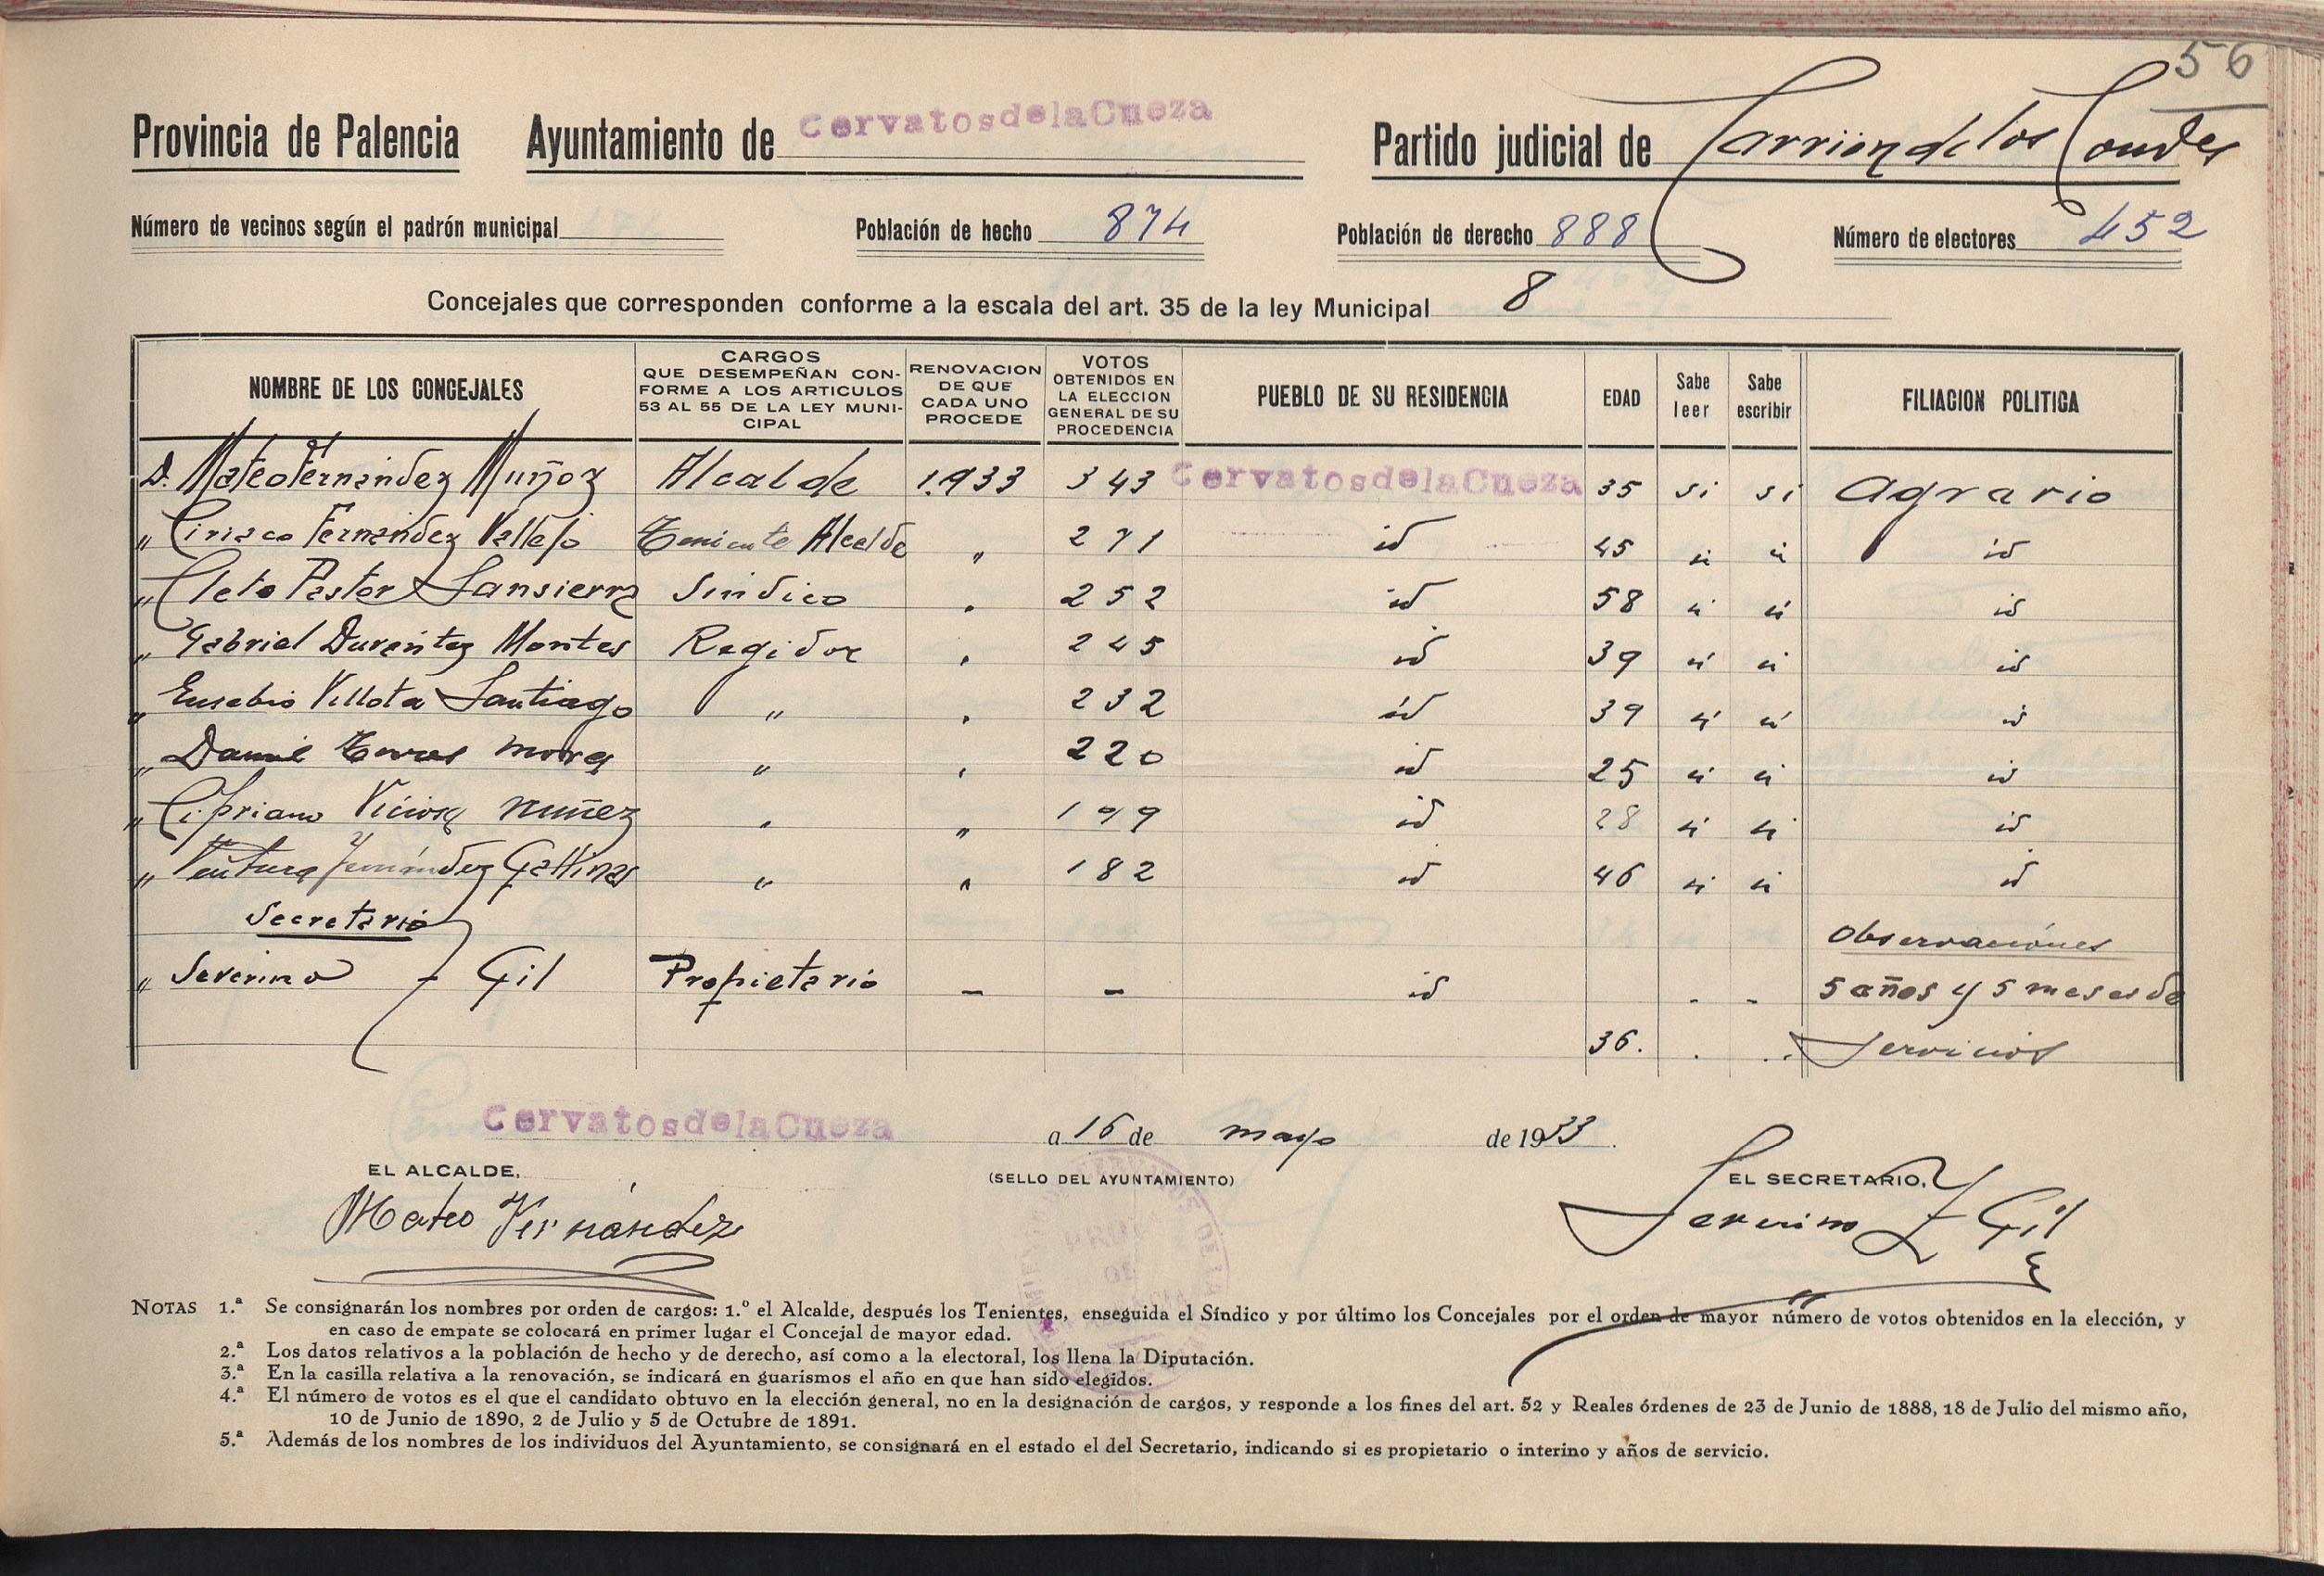 56
Provincia de Palencia Ayuntamiento de CervatosdelaCueza Partido judicial de Carrion de los Condes
Número de vecinos según el padrón municipal Población de hecho 874 Población de derecho 888 Número de electores 452
Concejales que corresponden conforme a la escala del art. 35 de la ley Municipal 8
NOMBRE DE LOS CONCEJALES CARGOS QUE DESEMPEÑAN CONFORME A LOS ARTICULOS 53 AL 55 DE LA LEY MUNICIPAL RENOVACION DE QUE CADA UNO PROCEDE VOTOS OBTENIDOS EN LA ELECCION GENERAL DE SU PROCEDENCIA PUEBLO DE SU RESIDENCIA EDAD Sabe leer Sabe escribir FILIACION POLITICA
D. Mateo Fernández Muñoz Alcalde 1.933 343 CervatosdelaCueza 35 si si agrario
" Ciriaco Fernandez Vallejo Teniente Alcalde " 271 id 45 si si id
" Cleto Pastor Sansierra Sindico " 252 id 58 si si id
" Gabriel Durantez Montes Regidor " 245 id 39 si si id
" Eusebio Villota Santiago " " 232 id 39 si si id
" Daniel Torres Mora " " 220 id 25 si si id
" Cipriano Viciosa Nuñez " " 199 id 28 si si id
" Ventura Fernández Gallinas " " 182 id 46 si si id
Secretario Observaciones
" Severino F Gil Propietario - - id - - 5 años y 5 meses de
36. servicios
CervatosdelaCueza a 16 de mayo de 1933.
EL ALCALDE, (SELLO DEL AYUNTAMIENTO) EL SECRETARIO,
Mateo Fernández Severino F Gil
NOTAS 1.ª Se consignarán los nombres por orden de cargos: 1.º el Alcalde, después los Tenientes, enseguida el Síndico y por último los Concejales por el orden de mayor número de votos obtenidos en la elección, y
en caso de empate se colocará en primer lugar el Concejal de mayor edad.
2.ª Los datos relativos a la población de hecho y de derecho, así como a la electoral, los llena la Diputación.
3.ª En la casilla relativa a la renovación, se indicará en guarismos el año en que han sido elegidos.
4.ª El número de votos es el que el candidato obtuvo en la elección general, no en la designación de cargos, y responde a los fines del art. 52 y Reales órdenes de 23 de Junio de 1888, 18 de Julio del mismo año,
10 de Junio de 1890, 2 de Julio y 5 de Octubre de 1891.
5.ª Además de los nombres de los individuos del Ayuntamiento, se consignará en el estado el del Secretario, indicando si es propietario o interino y años de servicio.